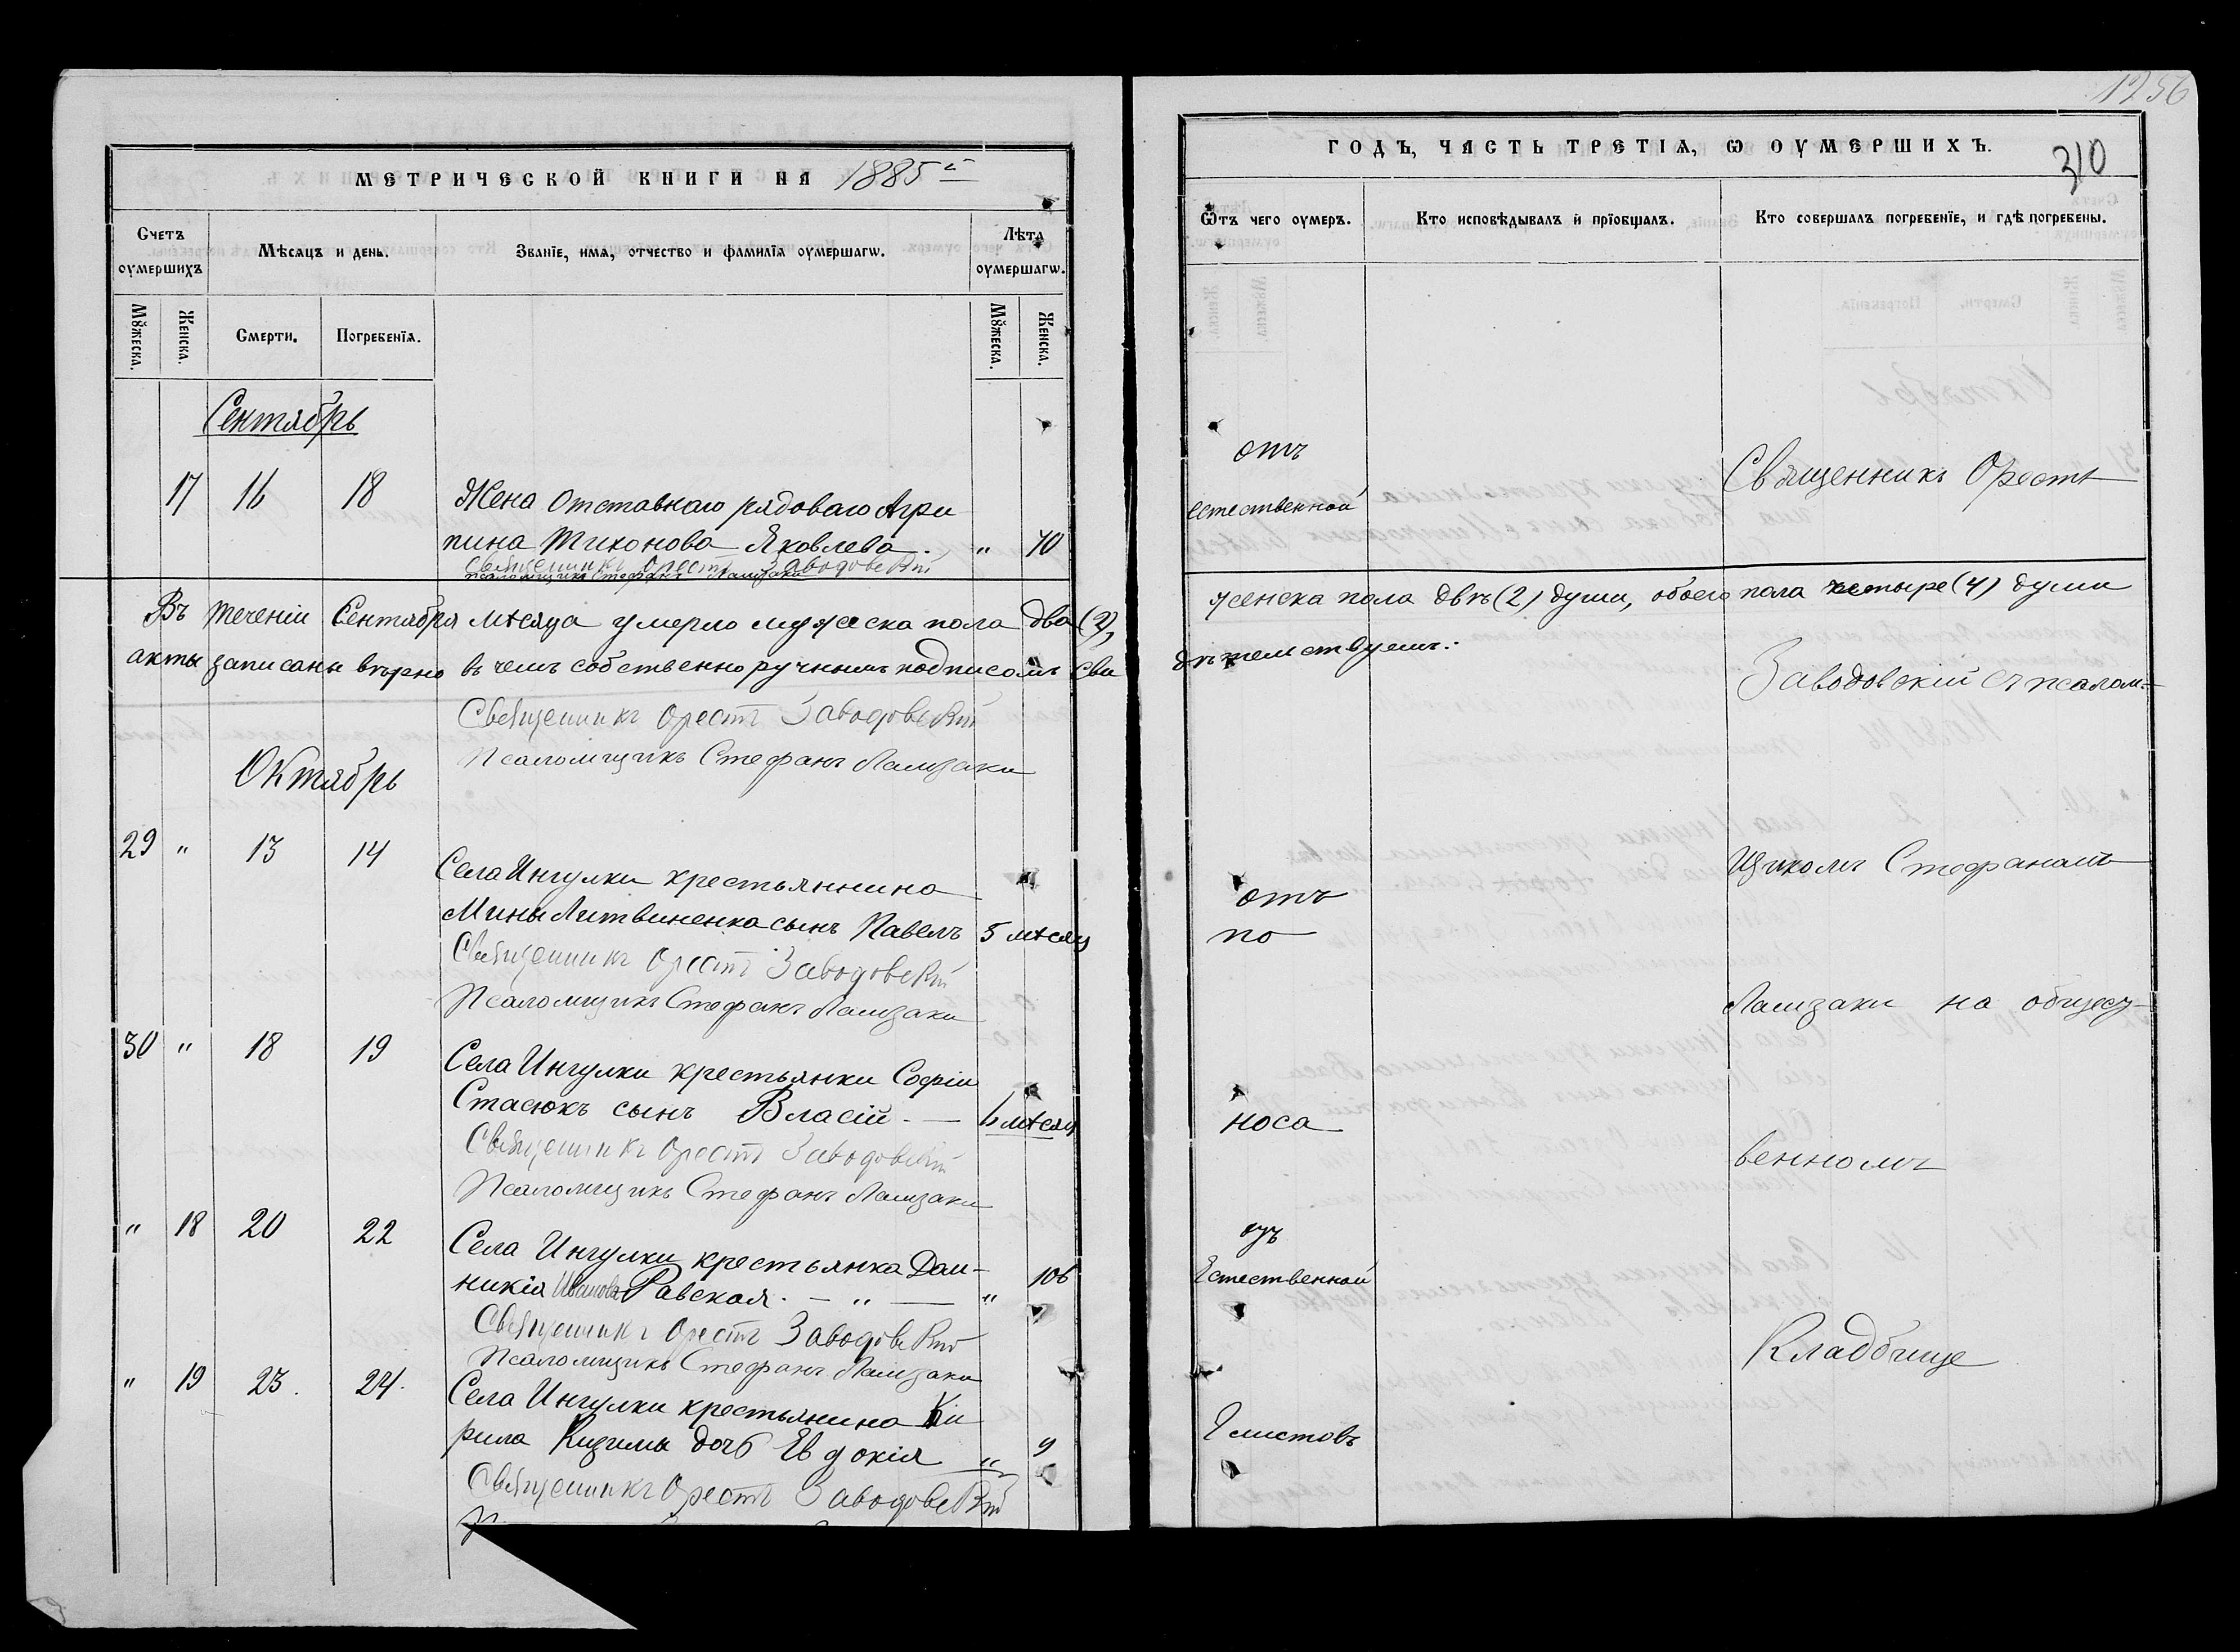 1256
МЕТРИЧЕСКОЙ КНИГИ НА 1885й
ГОДЪ, ЧАСТЬ ТРЕТІѦ, Ѡ ОУМЕРШИХЪ.
310
Счетъ оумершихъ
Мѣсѧцъ и день.
Званїе, имѧ, отчество и фамилїѧ оумершагѡ.
Лѣта оумершагѡ.
Мꙋжеска.
Женска.
Смерти.
Погребенїѧ.
Мꙋжеска.
Женска.
Ѿтъ чего оумеръ.
Кто исповѣдывалъ и прїобщалъ.
Кто совершалъ погребенїе, и гдѣ погребены.
Сентябрь
17 16 18 Жена Отставнаго рядоваго Агри
пина Тихонова Яковлева. " 70
Священникъ Орестъ Заводовскій
псаломщикъ Стефанъ Ламзаки
отъ
естественной
Священникъ Орестъ
Въ теченіи Сентября мѣсяца умерло мужеска пола два (2), женска пола двѣ (2) души, обоего пола четыре (4) души
акты записаны вѣрно въ чемъ собственноручнымъ подписомъ сви
дѣтельствуемъ:
Священникъ Орестъ Заводовскій
Псаломщикъ Стефанъ Ламзаки
Заводовскій съ псалом-
Октябрь
29 " 13 14 Села Ингулки крестьянина
Мины Литвиненка сынъ Павелъ 5 мѣсяц
Священникъ Орестъ Заводовскій
Псаломщикъ Стефанъ Ламзаки
отъ
по
щикомъ Стефаномъ
Ламзаки на общест-
30 " 18 19 Села Ингулки крестьянки Софіи
Стасюкъ сынъ Власій. — 6 мѣсяц
Священникъ Орестъ Заводовскій
Псаломщикъ Стефанъ Ламзаки
носа
венномъ
" 18 20 22 Села Ингулки крестьянка Дом-
никія Иванова Равская. — " — " 106
Священникъ Орестъ Заводовскій
Псаломщикъ Стефанъ Ламзаки
Естественной
Кладбище
" 19 23. 24. Села Ингулки крестьянина Ки
рила Кизимы дочь Евдокія " 9
Священникъ Орестъ Заводовскій
Глистовъ